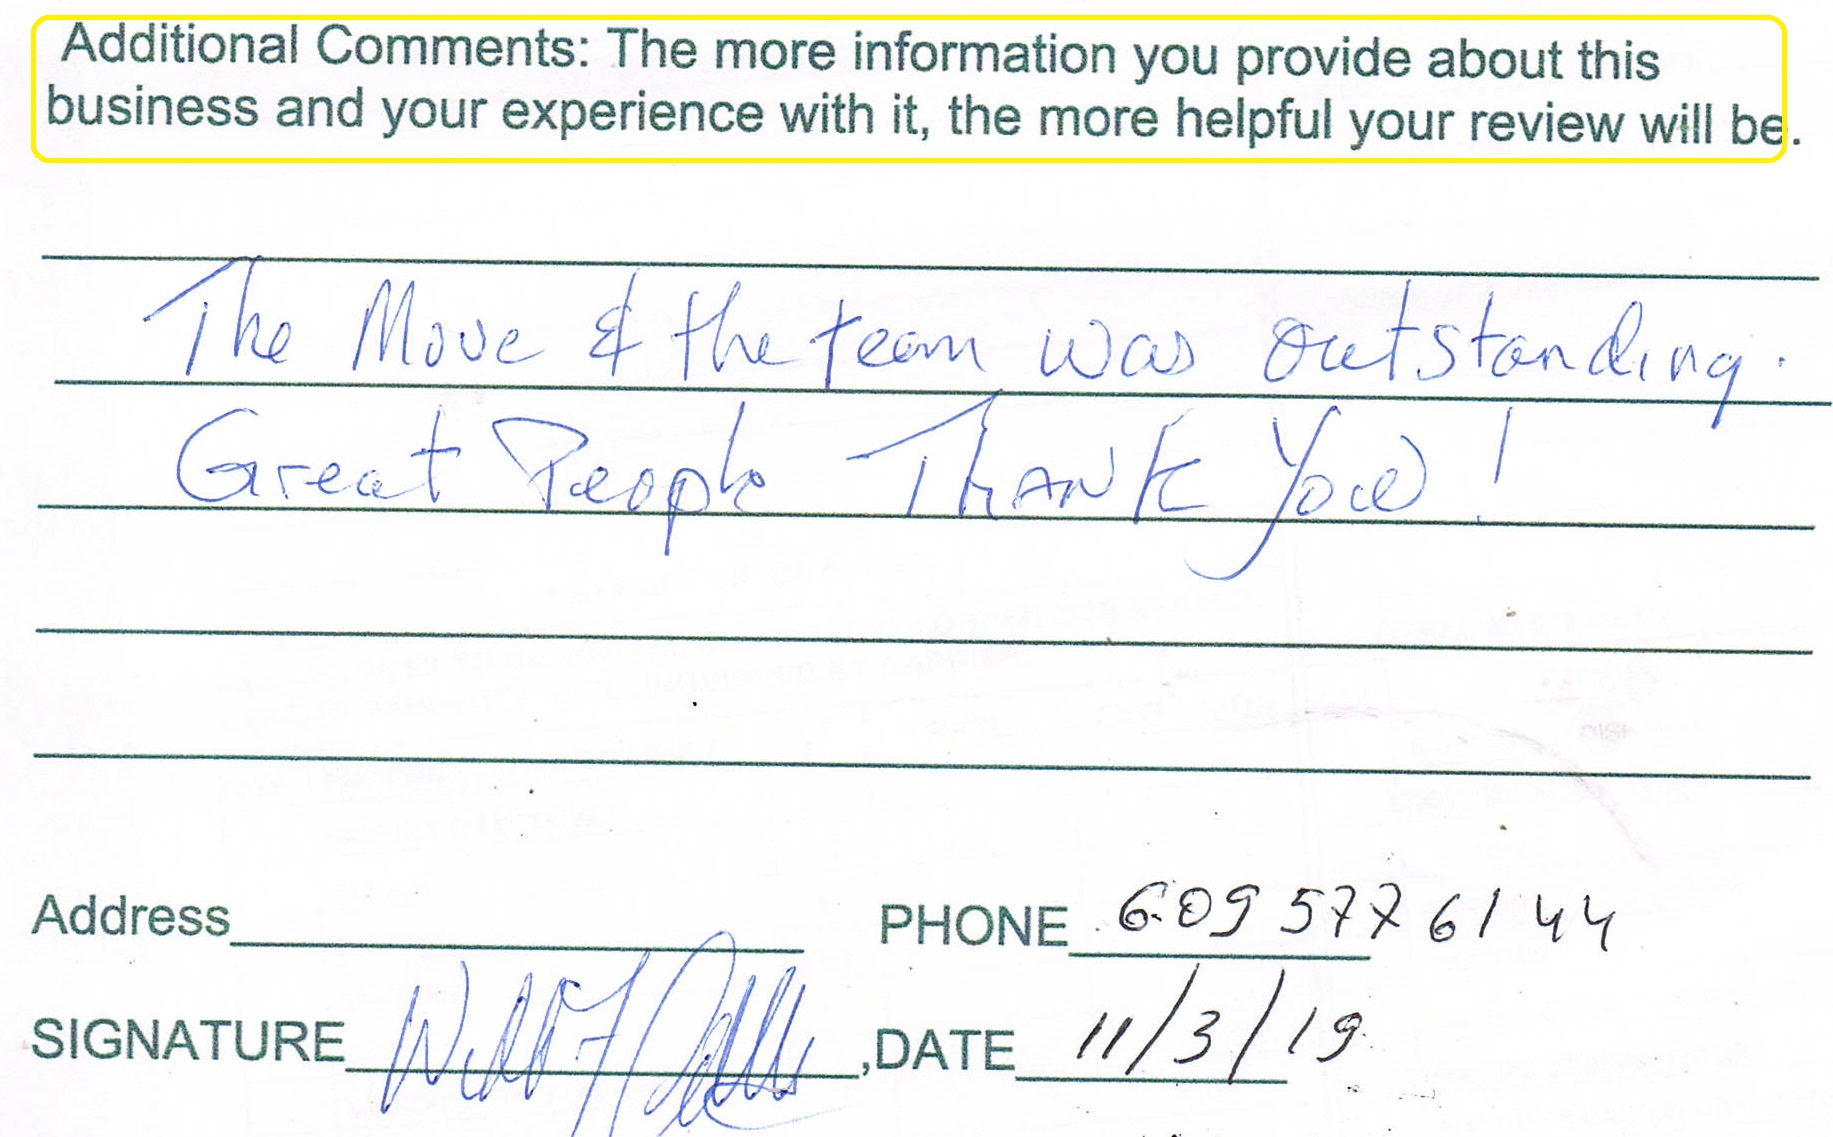 Additional Comments: The more information you provide about this
business and your experience with it, the more helpful your review will be.
The Move & the team was outstanding.
Great People Thank You!
Address
PHONE 609 577 6144
SIGNATURE
,DATE 11/3/19